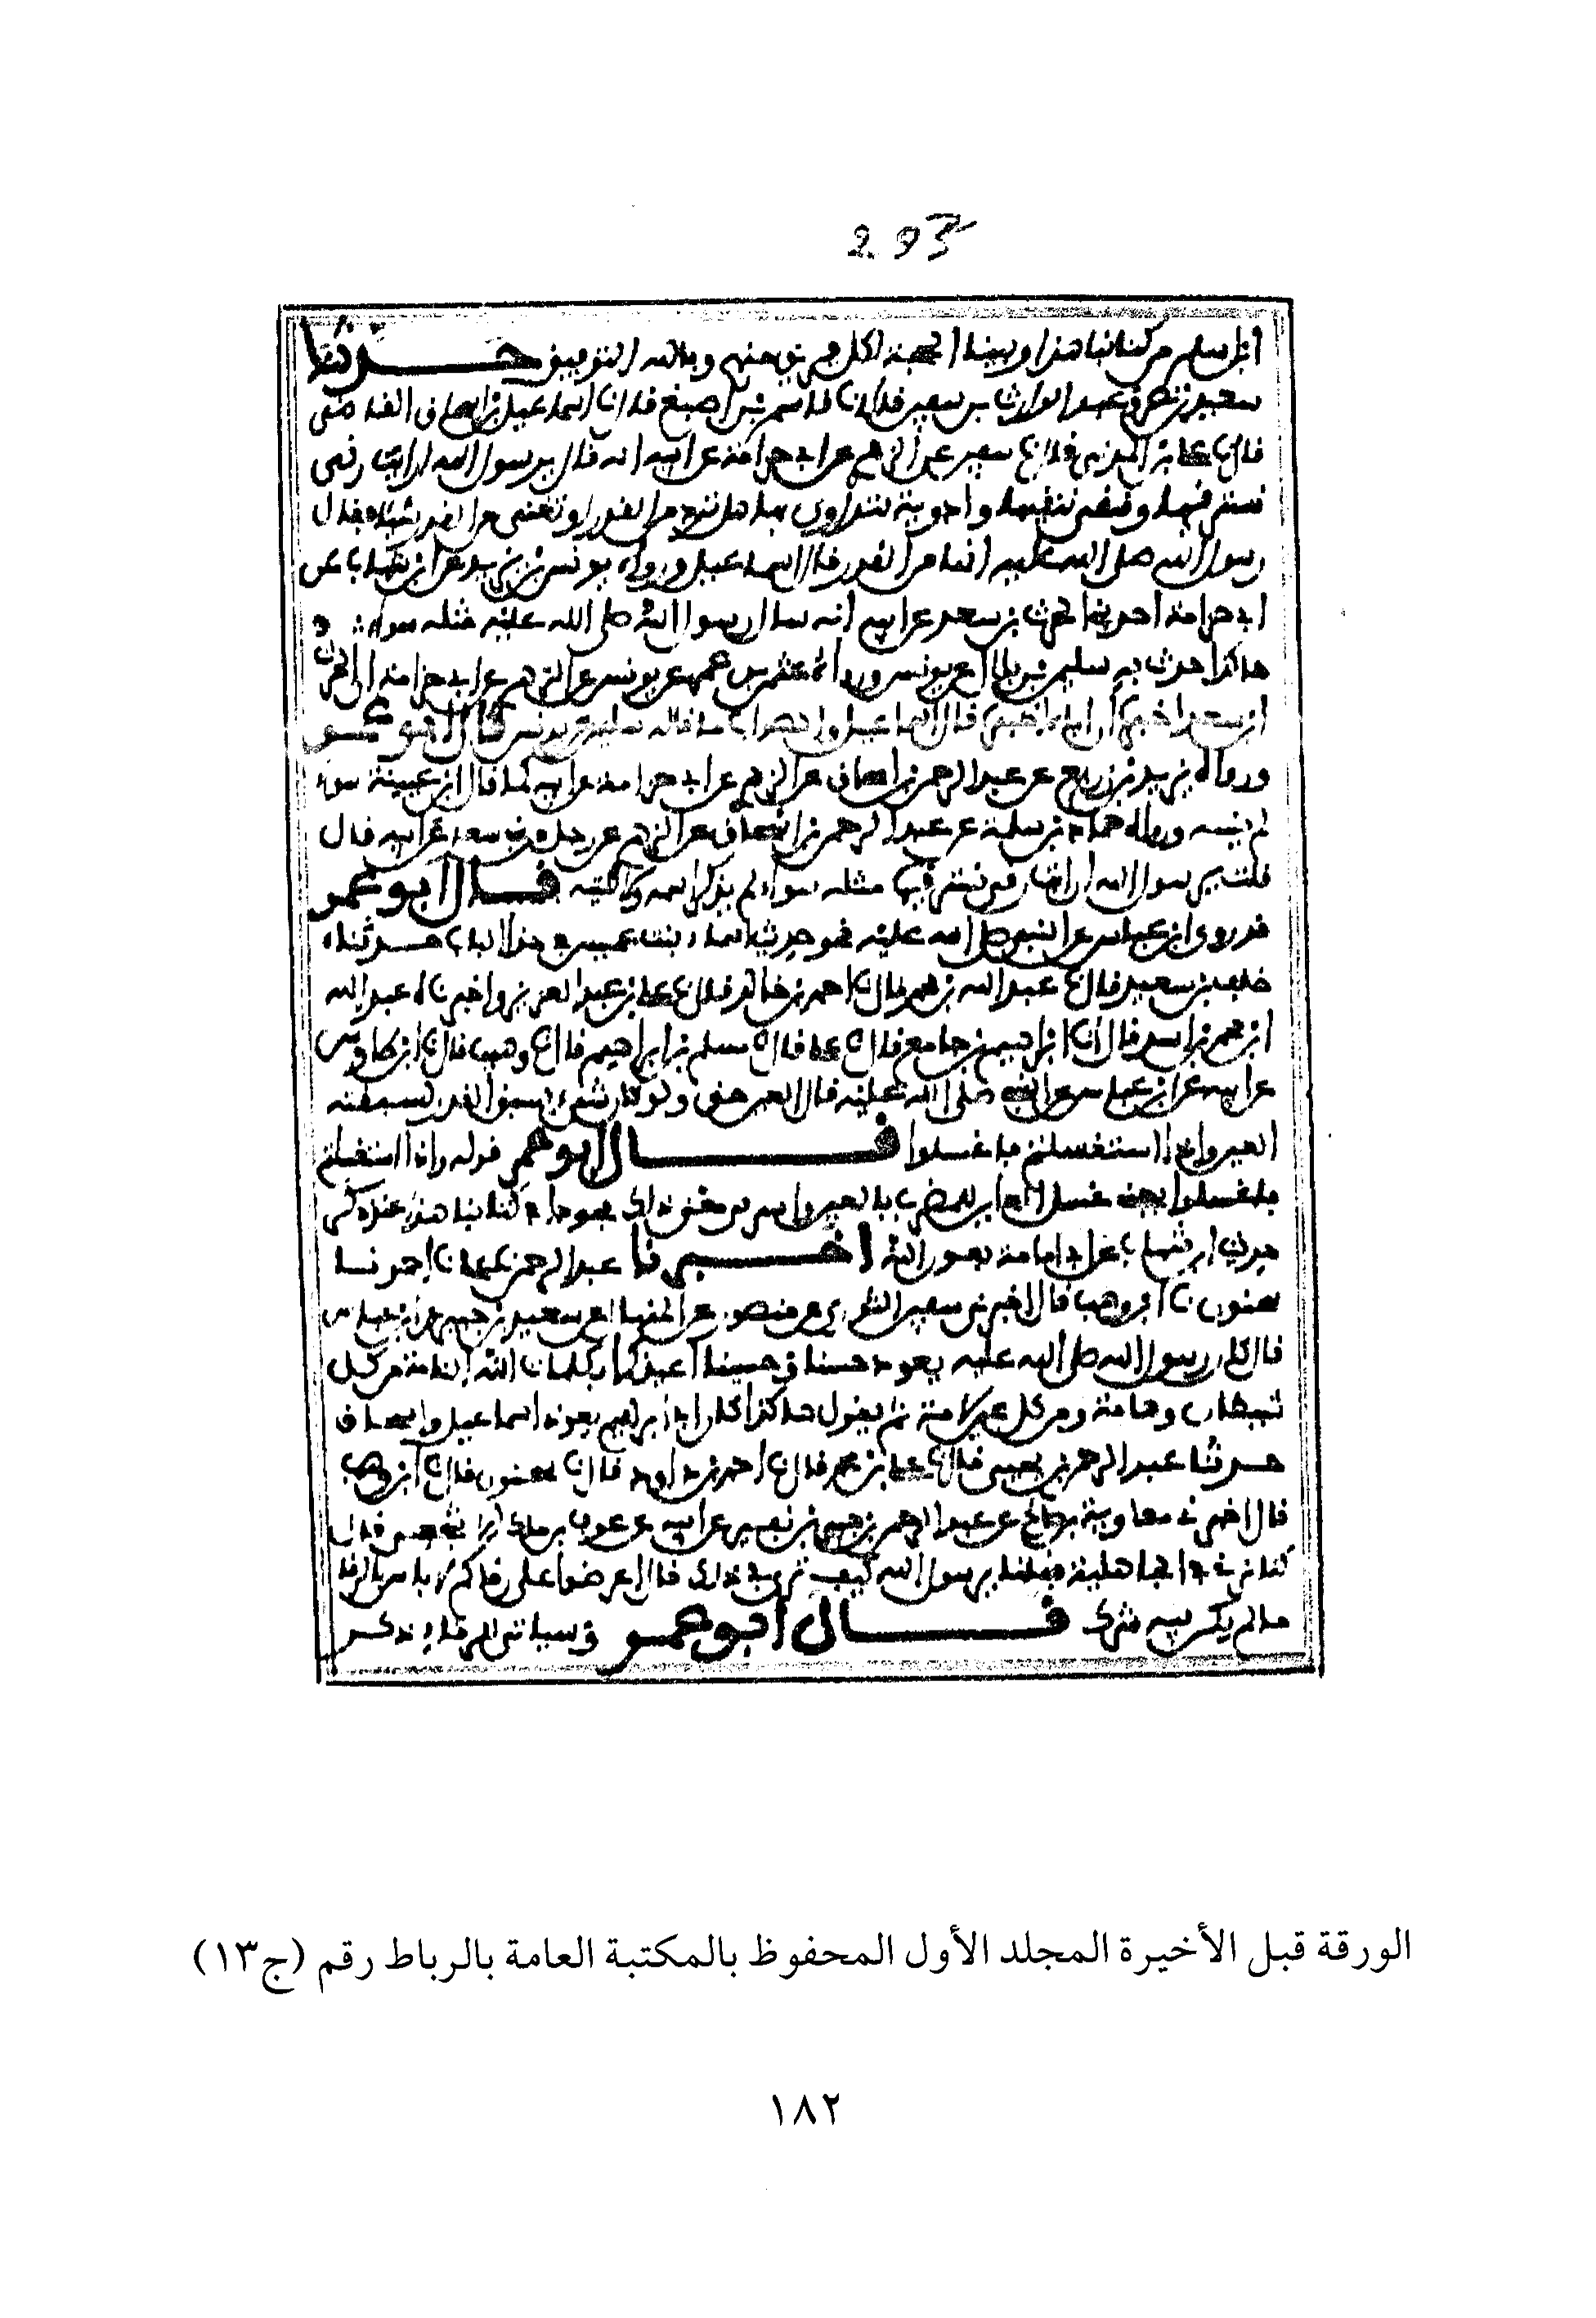 293
ابن سلم من كتابنا هذا وبينا الحجة لكل فريق منهم وبالله التوفيق حدثنا
سعيد بن نصر وعبد الوارث بن سعيد قالا نا قاسم بن أصبغ قال نا اسماعيل بن إسحاق القاضي
قال نا علي بن المديني قال نا سفين عن الزهري عن ابي خزامة عن ابيه انه قال يرسول الله ارايت رقى
نسترقيها وتقى نتقيها وادوية نتداوى بها هل ترد من القدر او تغني من القدر شيئا فقال
رسول الله صلى الله عليه انها من القدر قال اسماعيل ورواه يونس بن يزيد عن ابن شهاب عن
ابي خزامة احد بني الحرث بن سعد عن ابيه انه سال رسول الله صلى الله عليه مثله سواء
هاكذا حدث به سليمن بن بلال عن يونس ورواه عثمن بن عمر عن يونس عن الزهري عن ابي خزامة ان الحرث
ابن سعد اخبره ان اباه اخبره قال اسماعيل والصواب ما قاله سليمن عن يونس قال ابو عمر
ورواه يزيد بن زريع عن عبد الرحمن بن إسحاق عن الزهري عن ابي خزامة عن ابيه كما قال ابن عيينة سواء
لم ينسبه ورواه حماد بن سلمة عن عبد الرحمن بن إسحاق عن الزهري عن رجل من بني سعد عن ابيه قال
قلت يرسول الله ارايت رقى نسترقيها مثله سواء لم يذكر اسمه ولا كنيته قال ابو عمر
قد روى ابن عباس عن النبي صلى الله عليه نحو حديث اسماء بنت عميس في هذا الباب حدثناه
خلف بن سعيد قال نا عبد الله بن محمد قال نا احمد بن خالد قال نا علي بن عبد العزيز واخبرناه عبد الله
ابن محمد بن اسد قال نا ابن جامع قال نا علي قال نا مسلم بن ابراهيم قال نا وهيب قال نا ابن طاوس
عن ابيه عن ابن عباس عن النبي صلى الله عليه قال العين حق ولو كان شيء يسبق القدر لسبقته
العين واذا استغسلتم فاغسلوا قال ابو عمر قوله واذا استغسلتم
فاغسلوا يعني غسل العاين للمضروب بالعين وسنبين معنى ذلك بعد هذا في كتابنا هذا عند ذكر
حديث ابن شهاب عن ابي امامة بعون الله اخبرنا عبد الرحمن نا علي نا احمد نا
سحنون نا ابن وهب قال اخبرني سفين الثوري عن منصور عن المنهال عن سعيد بن جبير عن ابن عباس
قال كان رسول الله صلى الله عليه يعوذ حسنا وحسينا اعيذكما بكلمات الله التامة من كل
شيطان وهامة ومن كل عين لامة ثم يقول هاكذا كان ابي ابراهيم يعوذ اسماعيل واسحاق
حدثنا عبد الرحمن بن يحيى قال نا علي بن محمد قال نا احمد بن داود قال نا سحنون قال نا ابن وهب
قال اخبرني معاوية بن صالح عن عبد الرحمن بن جبير بن نفير عن ابيه عن عوف بن مالك الاشجعي قال
كنا نرقي في الجاهلية فقلنا يرسول الله كيف ترى في ذلك قال اعرضوا علي رقاكم لا باس بالرقا
ما لم يكن فيه شرك قال ابو عمر وسياتي من هذا ذكر
الورقة قبل الأخيرة المجلد الأول المحفوظ بالمكتبة العامة بالرباط رقم (ج١٣)
١٨٢